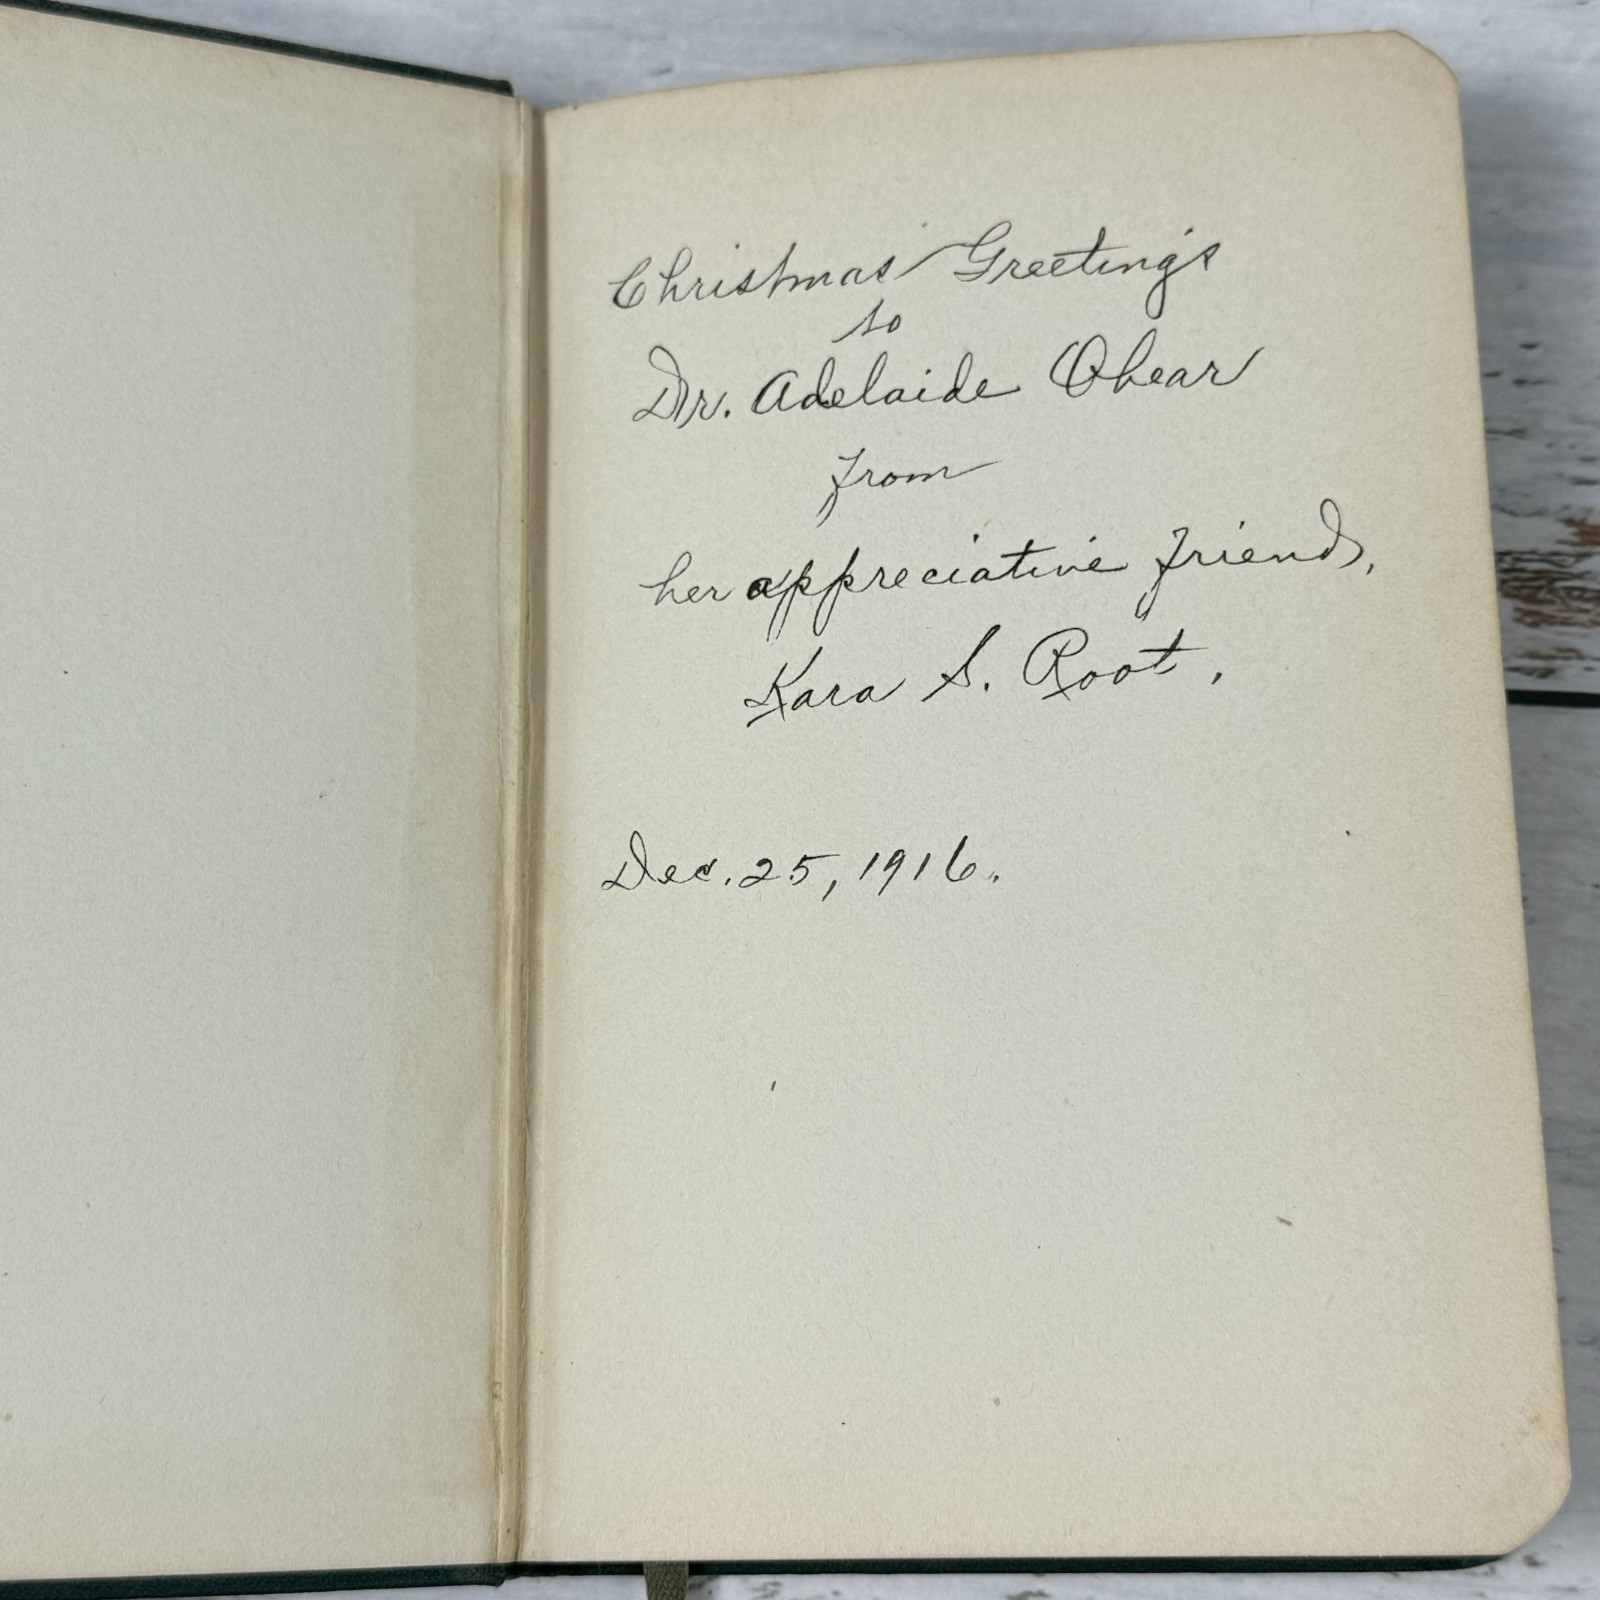 Christmas Greetings
to
Dr. Adelaide Obear
from
her appreciative friend,
Kara S. Root,
Dec. 25, 1916.